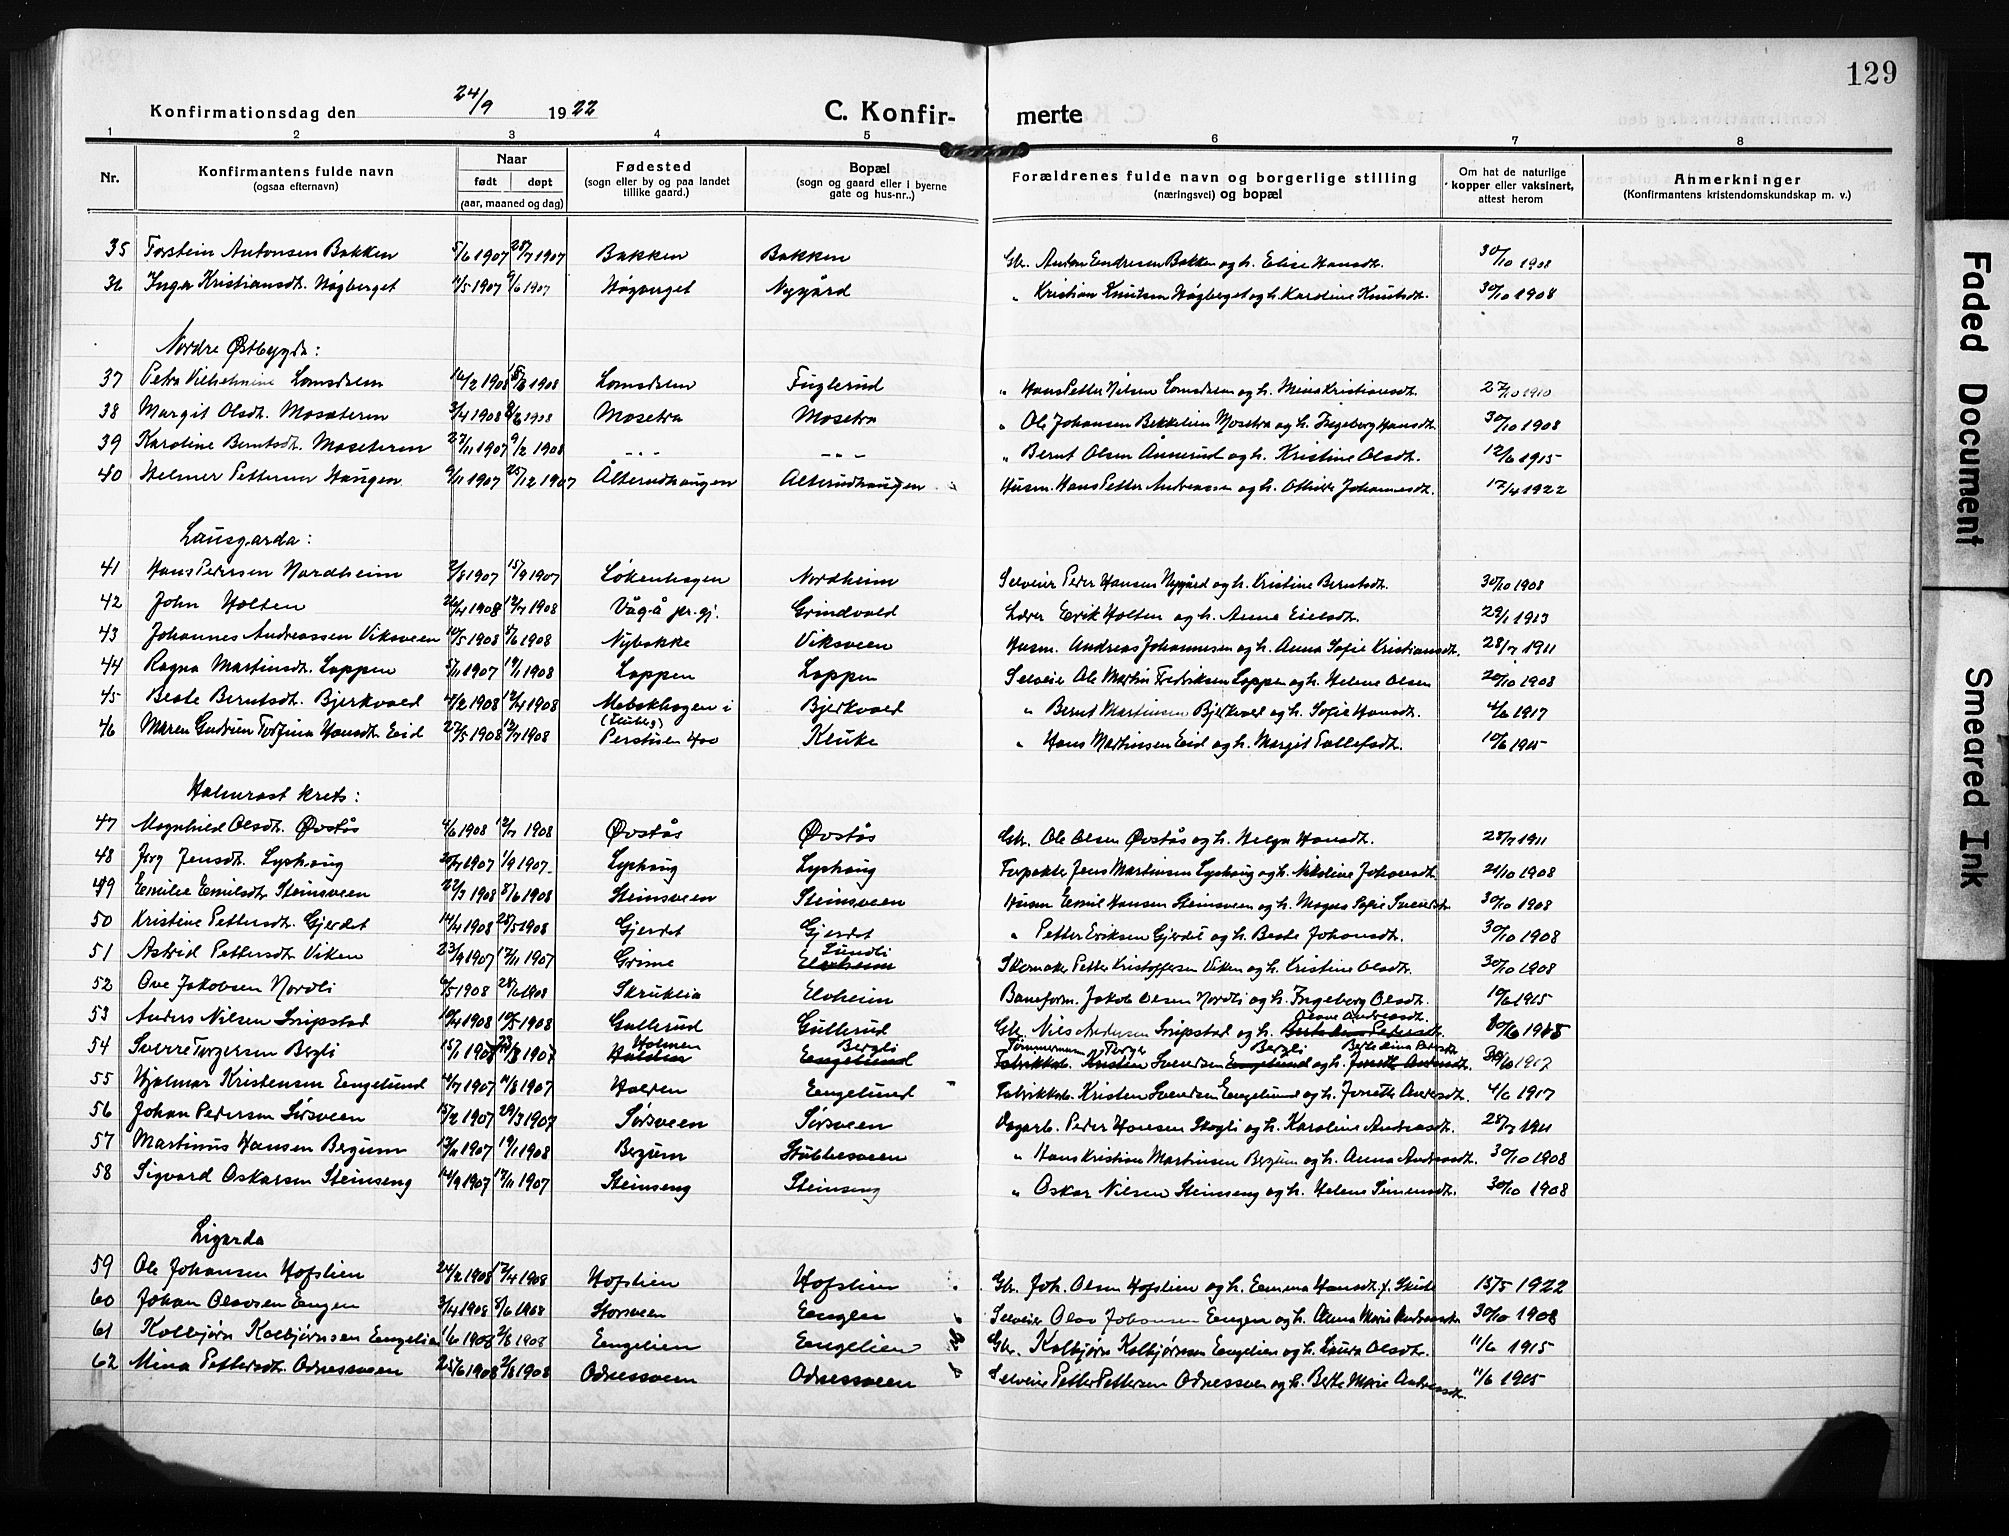 129
Konfirmationsdag den 24/9 1922 C. Konfir- merte
1 2 3 4 5 6 7 8
Nr. Konfirmantens fulde navn (ogsaa efternavn) Naar født døpt (aar, maaned og dag) Fødested (sogn eller by og paa landet tillike gaard.) Bopæl (sogn og gaard eller i byerne gate og hus-nr..) Forældrenes fulde navn og borgerlige stilling (næringsvei) og bopæl Om hat de naturlige kopper eller vaksinert, attest herom Anmerkninger (Konfirmantens kristendomskundskap m. v.)
35 Torstein Antonsen Bakken 5/6 1907 28/7 1907 Bakken Bakken Gbr. Anton Endresen Bakken og h. Elise Hansdt. 30/10 1908
36 Inga Kristiansdt. Høgberget 11/5 1907 9/6 1907 Nygård " Kristian Knutsen Høgberget og h. Karoline Knutsdt. 30/10 1908
Nordre Østbygda:
37 Petra Vilhelmine Lomsdren 16/2 1908 1908 Lomsdren Fuglerud " Hans Petter Nilsen Lomsdren og h. Mina Kristiansdt. 27/10 1910
38 Margit Olsdt. Moseteren 3/4 1908 1908 Mosetra Mosetra " Ole Johansen Bekkelien Mosetra og h. Ingeborg Hansdt. 30/10 1908
39 Karoline Berntsdt. Moseteren 27/11 1907 9/2 1908 - - - - - - " Bernt Olsen Ånnerud og h. Kristine Olsdt. 12/6 1915
40 Helmer Pettersen Haugen 9/11 1907 25/12 1907 Ålterudhaugen Alterudhaugen Husm. Hans Petter Andreassen og h. Othilde Johannesdt. 17/4 1922
Lausgarda:
41 Hans Pedersen Nordheim 2/8 1907 15/9 1907 Løkenhagen Nordheim Selveier Peder Hansen Nygård og h. Kristine Berntsdt. 30/10 1908
42 John Holten 1908 12/4 1908 Vågå pr.gj. Grindvold Lærer Erik Holten og h. Anne Eielsdt. 29/1 1913
43 Johannes Andreassen Viksveen 10/5 1908 8/6 1908 Nybakke Viksveen Husm. Andreas Johannesen og h. Anna Sofie Kristiansdt. 28/7 1911
44 Ragna Martinsdt. Loppen 5/11 1907 19/1 1908 Loppen Loppen Selveier Ole Martin Fredriksen Loppen og h. Helene Olsen 20/10 1908
45 Beate Berntsdt. Bjerkvold 4/2 1908 12/4 1908 Bjerkvold " Bernt Martinsen Bjerkvold og h. Sofie Hansdt. 4/6 1917
46 Maren Gudrun Torfina Hansdt. Eid 27/5 1908 12/7 1908 Kluke " Hans Martinsen Eid og h. Margit Tollefsdt. 10/6 1915
Halmrast krets:
47 Magnhild Olsdt. Øvstås 4/6 1908 12/7 1908 Øvstås Øvstås Gbr. Ole Olsen Øvstås og h. Helga Hansdt. 28/7 1911
48 Jensdt. Lyshaug 1907 1/9 1907 Lyshaug Lyshaug Forpakte Jens Martinsen Lyshaug og h. Nikoline Johansdt. 21/10 1908
49 Emilie Emilsdt. Steinsveen 22/3 1908 8/6 1908 Steinsveen Steinsveen Husm Emil Hansen Steinsveen og h. Sofie Svendsdt. 30/10 1908
50 Kristine Pettersdt. Gjerdet 14/4 1908 28/5 1908 Gjerdet Gjerdet " Petter Eriksen Gjerdet og h. Beate Johansdt. 30/10 1908
51 Astrid Pettersdt. Viken 23/9 1907 17/11 1907 Grime Elvheim Sundli Skomaker Petter Kristoffersen Viken og h. Kristine Olsdt. 30/10 1908
52 Ove Jakobsen Nordli 6/5 1908 28/6 1908 Skruklia Elvheim Baneform. Jakob Olsen Nordli og h. Ingeborg Olsdt. 10/6 1915
53 Anders Nilsen Snipstad 10/4 1908 10/5 1908 Gullerud Gullerud Gbr. Nils Andersen Snipstad og h. Berte Lina Pedersdt. Andreasdt. 1915
54 Sverre Torgersen Bergli 1907 Haldem Holmen Engelund Bergli Fabrikkarb. Kristen Svendsen Engelund og h. Tømmermann Torger Bergli Berte Lina Pedersdt. 1917
55 Hjalmar Kristensen Engelund 4/7 1907 11/8 1907 Holmen Engelund Fabrikkarb. Kristen Svendsen Engelund og h. Andersdt. 4/6 1917
56 Johan Pedersen Sørsveen 15/2 1907 29/3 1907 Sørsveen Sørsveen Dagarb. Peder Hansen Skogli og h. Karoline Andreasdt. 28/7 1911
57 Martinus Hansen Bergum 1907 19/1 1908 Bergum Stubbesveen " Hans Kristian Martinsen Bergum og h. Anna Andreasdt. 30/10 1908
58 Sigvard Oskarsen Steinseng 14/9 1907 17/11 1907 Steinseng Steinseng " Oskar Nilsen Steinseng og h. Helene Simensdt. 30/10 1908
Ligarda
59 Ole Johansen Hofslien 24/2 1908 12/4 1908 Hofslien Hofslien Gbr. Joh. Olsen Hofslien og h. Emma Hansdt. f. Skute 15/5 1922
60 Johan Olavsen Engen 3/4 1908 8/6 1908 Storsveen Engen Selveier Olav Johansen Engen og h. Anna Marie Andreasdt. 30/10 1908
61 Kolbjørn Kolbjørnsen Engelien 1/6 1908 2/8 1908 Engelien Engelien Gbr. Kolbjørn Kolbjørnsen Engelien og h. Laura Olsdt. 11/6 1915
62 Mina Pettersdt. Odnessveen 25/6 1908 2/8 1908 Odnessveen Odnessveen Selveier Petter Pettersen Odnessveen og h. Berte Marie Andreasdt. 11/6 1915
Faded Document
Smeared Ink